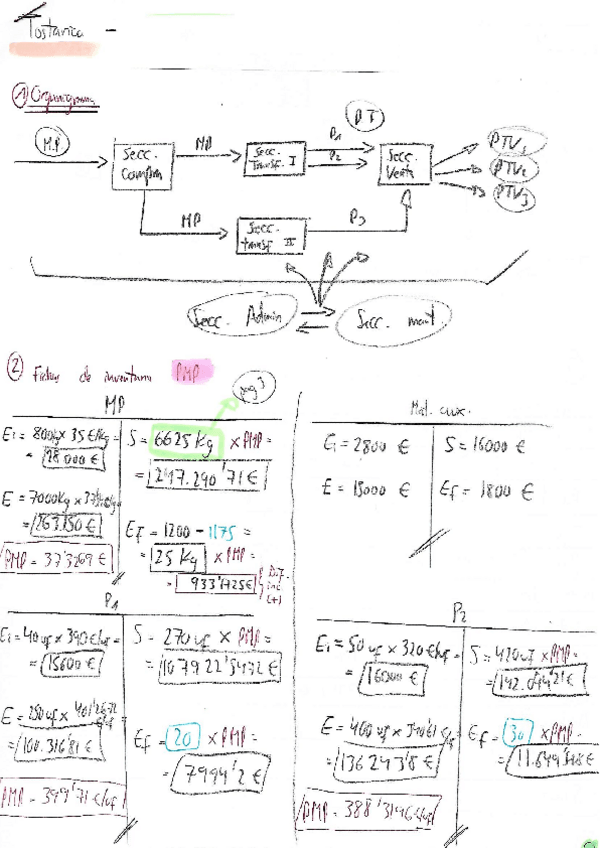 Tostarica -
① Organigrama
MP
PT
Secc. Comprm
MP
Secc. Transf. I
P1
P2
Secc. Venta
PTV1
PTV2
PTV3
MP
Secc. transf II
P3
Secc. Admin
Secc. mant
② Fichas de inventario PMP
pag 3
MP
Ei = 800kg x 35 €/kg =
= 28.000 €
S = 6625 kg x PMP =
= 247.290'71 €
E = 7000kg x
= 263.150 €
Ef = 1200 - 1175 =
= 25 kg x PMP =
= 933'1725 €
Dif. inc (+)
PMP = 37'3269 €
Mat. aux.
Ei = 2800 €
S = 16000 €
E = 15000 €
Ef = 1800 €
P1
Ei = 40 uf x 390 €/uf =
= 15600 €
S = 270 uf x PMP =
= 107922'5432 €
E = 250 uf x 401'2672 €/uf
= 100.316'81 €
Ef = 20 x PMP =
= 7994'2 €
PMP = 399'71 €/uf
P2
Ei = 50 uf x 320 €/uf =
= 16000 €
S = 420 uf x PMP =
= 142.044'21 €
E = 400 uf x 340'61 €/uf
= 136243'8 €
Ef = 30 x PMP =
= 11.649'548 €
PMP = 388'3196 €/uf